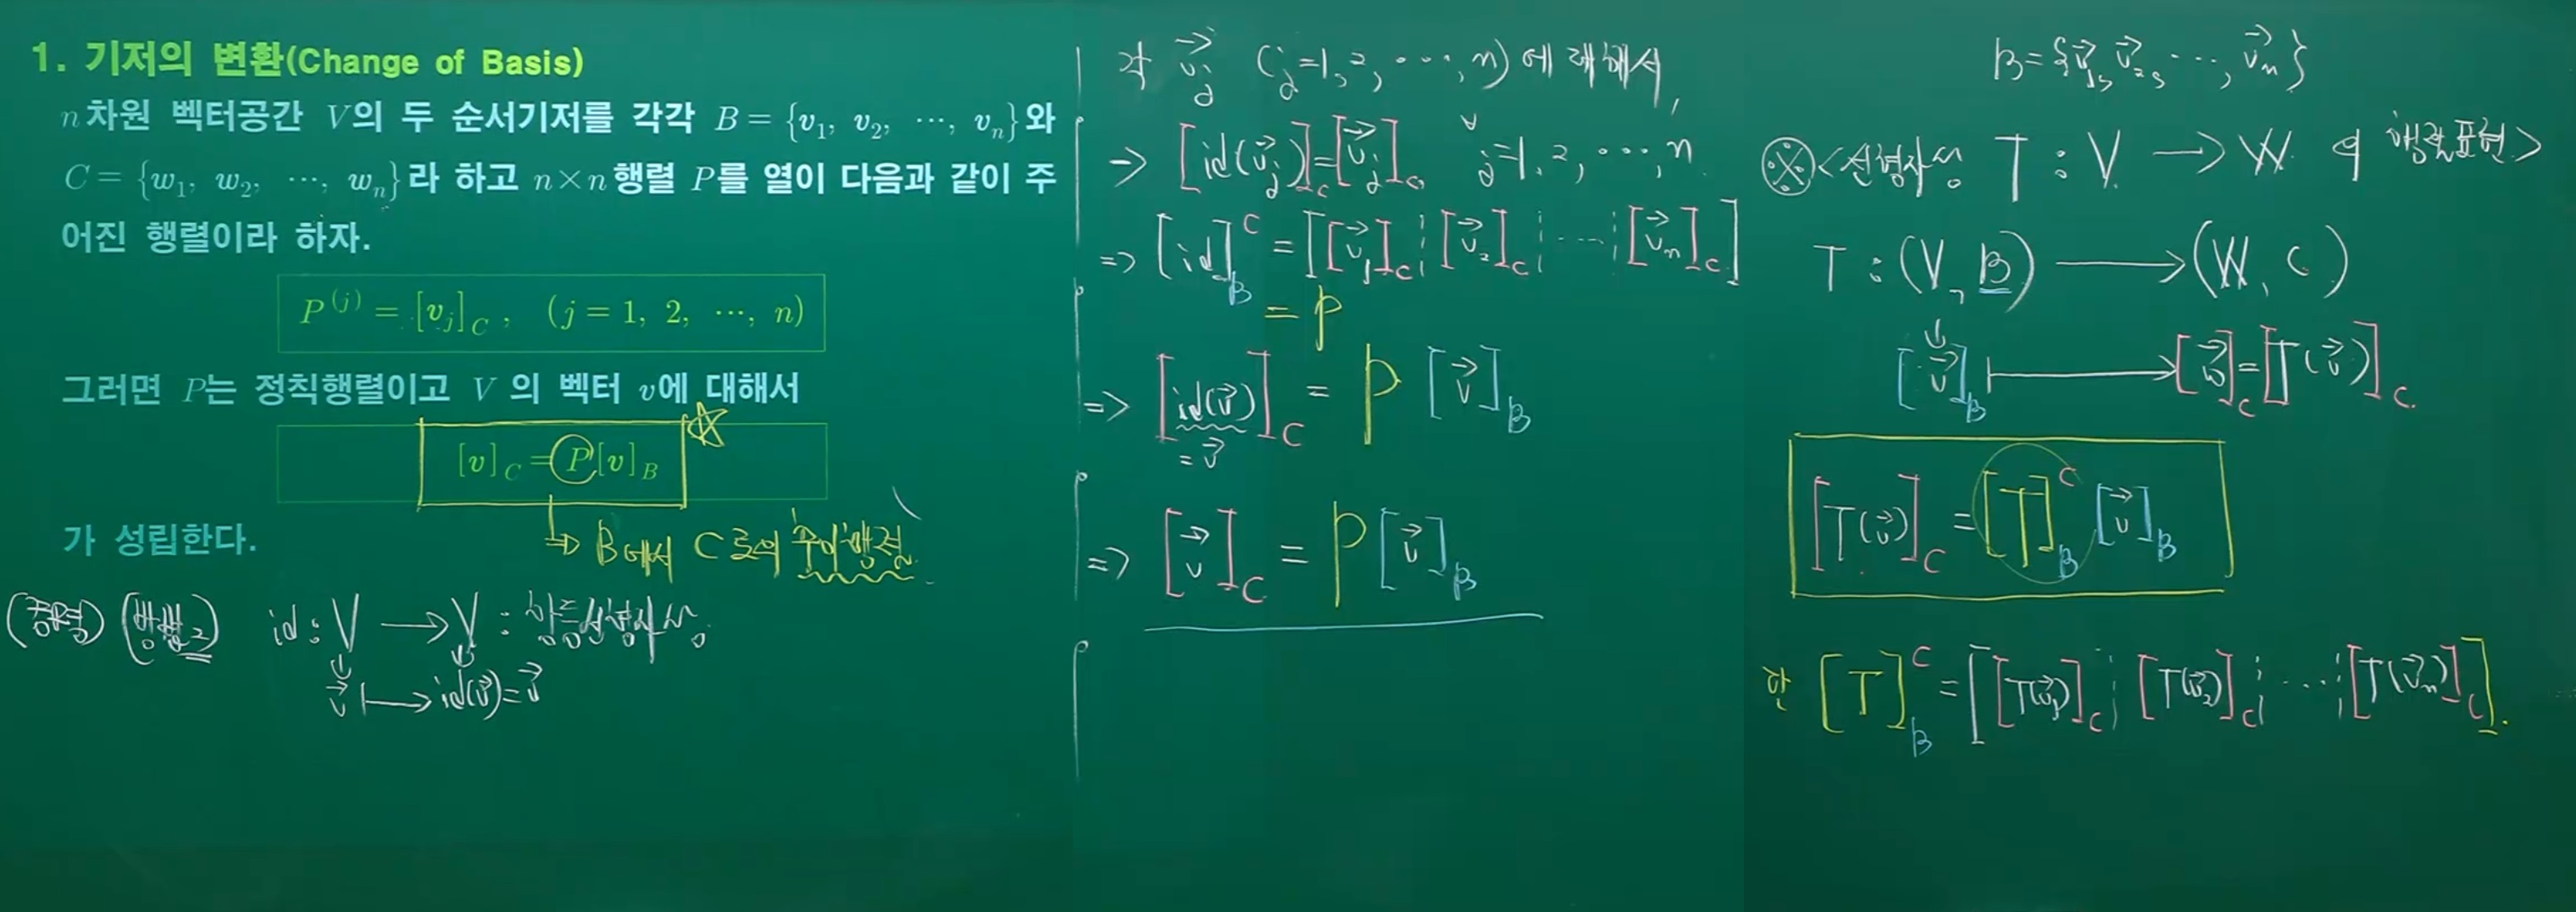 1. 기저의 변환(Change of Basis)
n차원 벡터공간 V의 두 순서기저를 각각 B = {v₁, v₂, ⋯, vₙ}와
C = {w₁, w₂, ⋯, wₙ}라 하고 n×n행렬 P를 열이 다음과 같이 주
어진 행렬이라 하자.
P⁽ʲ⁾ = [vⱼ]_C , (j = 1, 2, ⋯, n)
그러면 P는 정칙행렬이고 V 의 벡터 v에 대해서
[v]_C = P[v]_B
⇒ B에서 C로의 추이행렬
가 성립한다.
(증명) (방법2) id : V → V : 항등선형사상
v⃗ ↦ id(v⃗) = v⃗
각 v⃗ⱼ (j=1, 2, ⋯, n)에 대해서,
→ [id(v⃗ⱼ)]_C = [v⃗ⱼ]_C, ∀j=1, 2, ⋯, n
⇒ [id]_B^C = [[v⃗₁]_C ⋮ [v⃗₂]_C ⋮ ⋯ ⋮ [v⃗ₙ]_C]
= P
⇒ [id(v⃗)]_C = P [v⃗]_B
= v⃗
⇒ [v⃗]_C = P[v⃗]_B
B = {v⃗₁, v⃗₂, ⋯, v⃗ₙ}
※ <선형사상 T : V → W 의 행렬표현>
T : (V, B) → (W, C)
[v⃗]_B ↦ [w⃗]_C = [T(v⃗)]_C
[T(v⃗)]_C = [T]_B^C [v⃗]_B
단 [T]_B^C = [[T(v⃗₁)]_C ⋮ [T(v⃗₂)]_C ⋮ ⋯ ⋮ [T(v⃗ₙ)]_C].